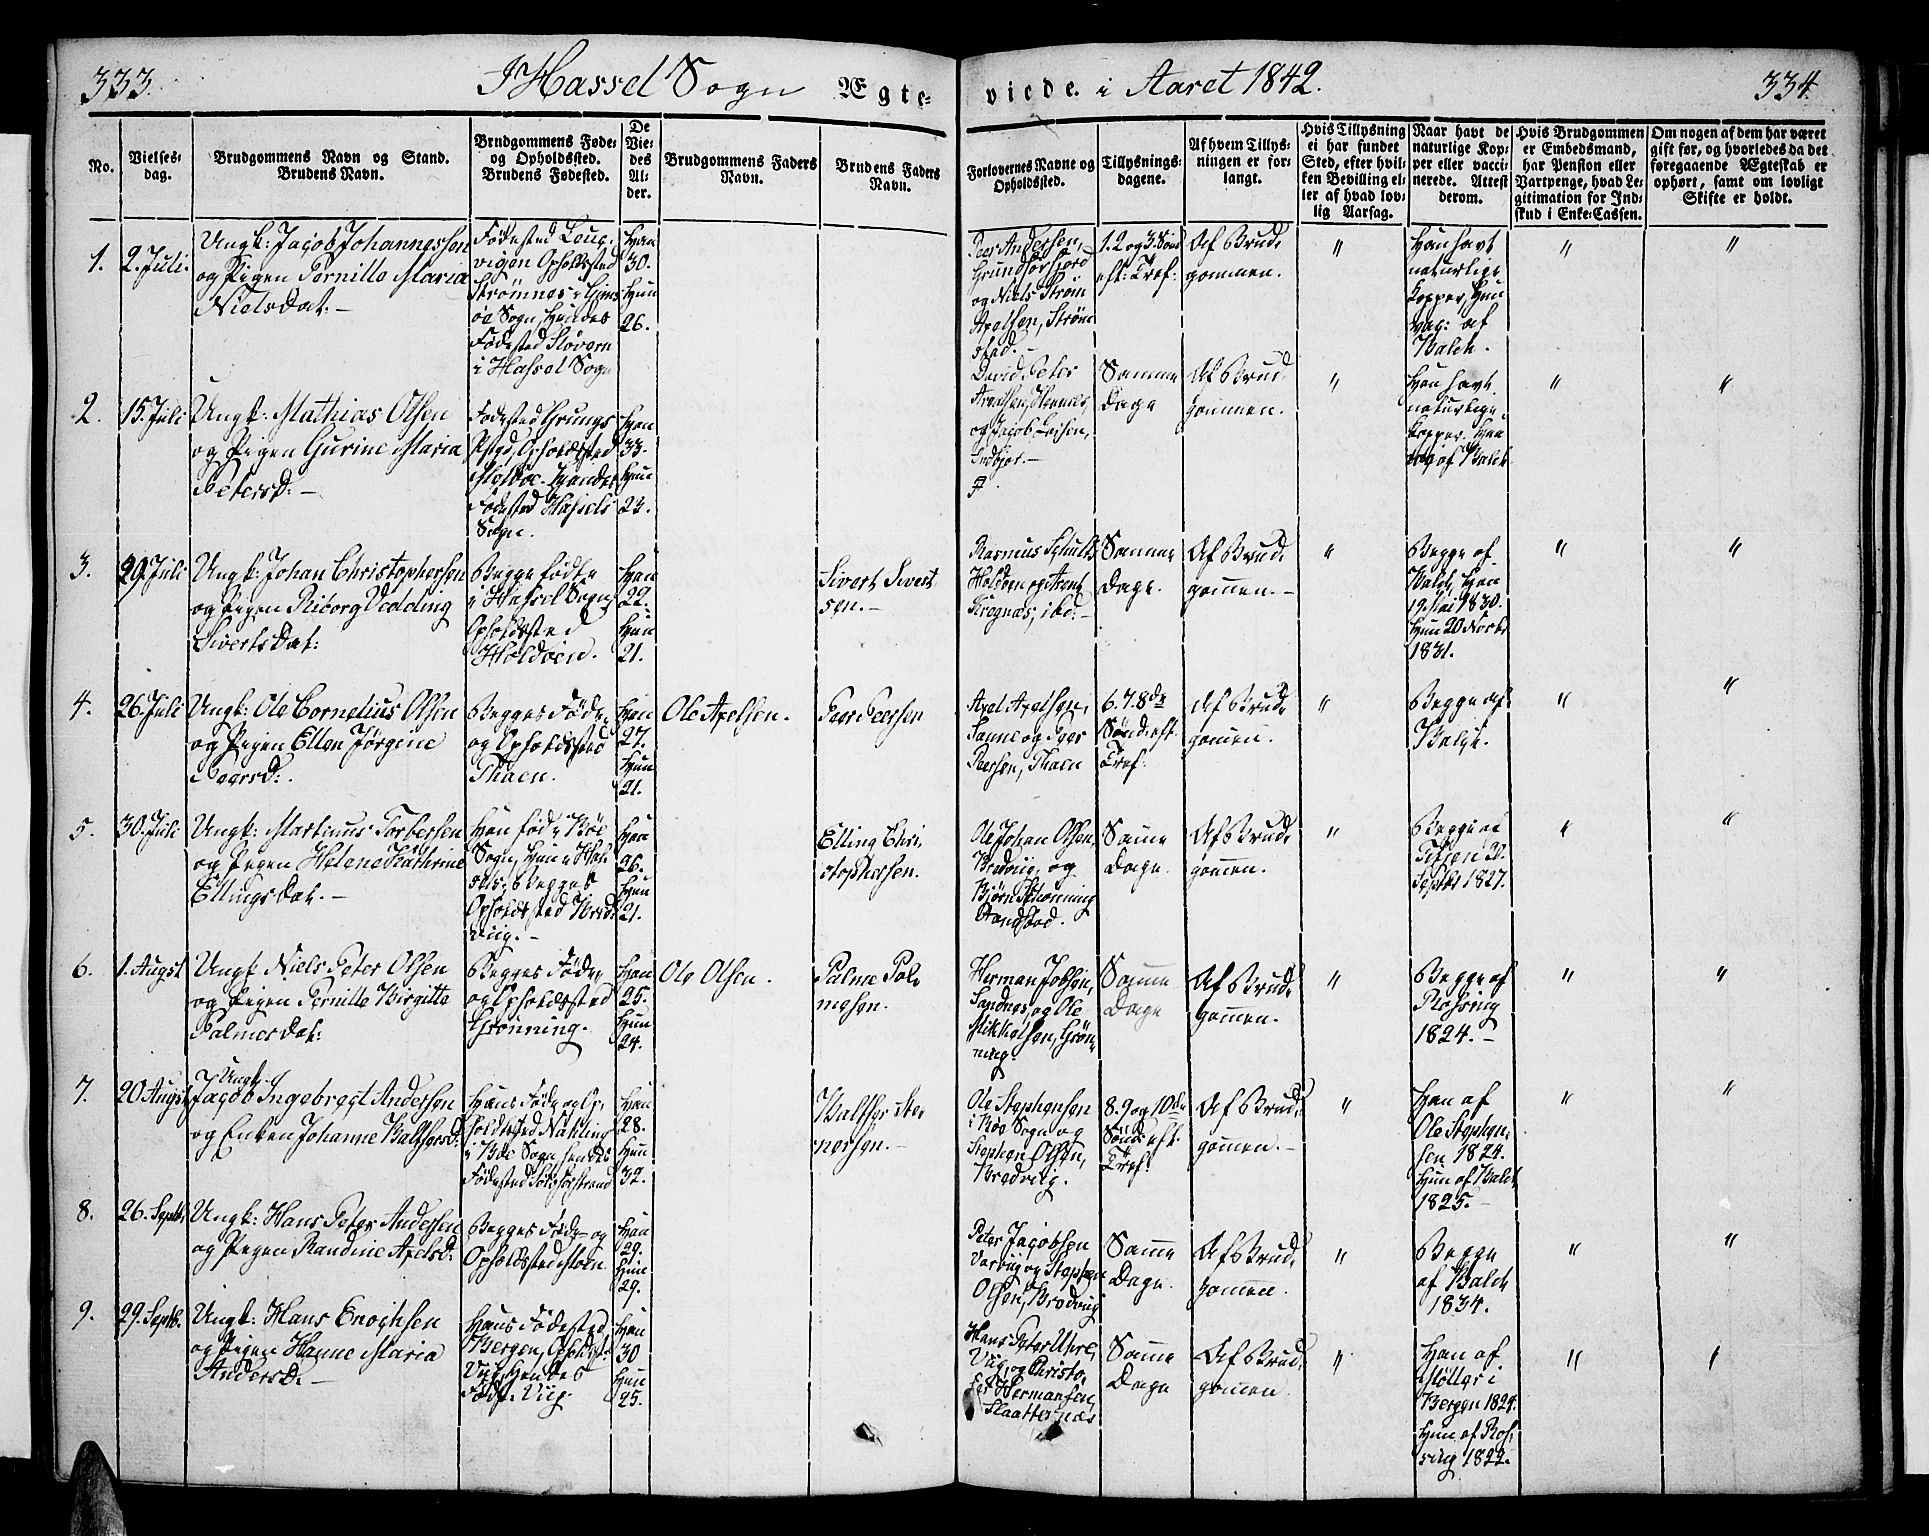 333.
I Hassel Sogn Ægte-
viede. i Aaret 1842.
334.
No.
Vielses-
dag.
Brudgommens Navn og Stand.
Brudens Navn.
Brudgommens Føde-
og Opholdssted.
Brudens Fødested.
De
Vie-
des
Al-
der.
Brudgommens Faders
Navn.
Brudens Faders
Navn.
Forlovernes Navne og
Opholdssted.
Tillysnings-
dagene.
Af hvem Tillys-
ningen er for-
langt.
Hvis Tillysning
ei har fundet
Sted, efter hvil-
ken Bevilling el-
ler af hvad lov-
lig Aarsag.
Naar havt de
naturlige Kop-
per eller vacci-
nerede. Attest
derom.
Hvis Brudgommen
er Embedsmand,
har Pension eller
Vartpenge, hvad Le-
gitimation for Ind-
skud i Enke-Cassen.
Om nogen af dem har været
gift før, og hvorledes da det
foregaaende Ægteskab er
ophørt, samt om lovligt
Skifte er holdt.
1.
2. Juli.
Ungk: Jacob Johannessen
og Pigen Pernille Maria
Nielsdat. —
Fødested Loug-
vigen Opholdssted
Strömnes i Gims
öe Sogn, Hendes
Födested
i Hassel Sogn
Han
30.
Hun
26.
Peer Andersen,
Grundförfjord
og Niels Ström
Axelsen, Ström
stad. —
1. 2 og 3. Sönd
eft: Tref:
Af Brud-
gommen.
"
Han havt
naturlige
Kopper, Hun
vac: af
Balch.
"
"
2.
15. Juli
Ungk: Mathias Olsen
og Pigen Gurine Maria
Petersd: —
Fødested Grungs
Opholdssted
Melboe. Hendes
Fødested Hassels
Sogn.
Han
33.
Hun
23.
David Peter
og Jacob
Samme
Dage
Af Brud
gommen.
"
Han havt
naturlige
Kopper. Hun
af Balch
"
"
3.
29 Juli
Ungk: Johan Christophersen
og Pigen Riborg Vedding
Sivertsdat:
Begge födte
i Hassel Sogn,
Opholdssted
Holdöen.
Han
22.
Hun
21.
Sivert Sivert
sen. —
Rasmus Schult
Holdöen og Arent
Kragnæs, ibd: —
Samme
Dage.
Af Brud
gommen. —
"
Begge af
Balch, Han
19 Mai 1830.
Hun 20 Novbr
1831.
"
"
4.
26. Juli
Ungk: Ole Cornelius Olsen
og Pigen Ellen Jørgine
Peersd:.
Begges Föde-
og Opholdssted
Thaen.
Han
27.
Hun
21.
Ole Axelsen.
Peer Peersen
Axel Axelsen,
Sanne og Peer
Peersen, Thaen
6. 7. 8de
Sönd: eft.
Tref.
Af Brud
gommen.
"
Begge af
Balch.
"
"
5.
30. Juli
Ungk: Martinus Torbersen
og Pigen Helene Kathrine
Ellingsdat. —
Han föd i Böe
Sogn, Hun i Has
sels, Begges
Opholdssted Bred
viig. —
Han
26.
Hun
21.
Elling Chri
stophersen.
Ole Johan Olsen,
Bredviig, og
Björn Schönning
Sandstad.
Samme
Dage.
Af Brud
gommen.
"
Begge af
30.
Septbr 1827.
"
"
6.
1. Augst
Ungk Niels Peter Olsen
og Pigen Pernille Birgitte
Palmesdat:
Begges Föde
og Opholdssted
Grönning.
Han
25.
Hun
24.
Ole Olsen.
Palme Pal
mesen.
Herman Jobsen,
Sandnes, og Ole
Mikkelsen, Grön
ning.
Samme
Dage
Af Brud
gommen.
"
Begge af
Rossing
1824. —
"
"
7.
20 Augst
Ungk.
Jacob Ingebregt Andersen
og Enken Johanne Baltsersd:
Hans Föde og Op
holdssted
i Böe Sogn, Hendes
Fødested
Han
28.
Hun
32.
Baltser Ste
nersen. —
Ole Stephensen
i Böe Sogn og
Stephen Olsen,
Bredviig.
8. 9 og 10de
Sönd: eft.
Tref.
Af Brud
gommen. —
"
Han af
Ole Stephen
sen 1824.
Hun af Balch
1825. —
"
"
8.
26. Septb.
Ungk: Hans Peter Andersen
og Pigen Randine Axelsd:
Begges Föde- og
Opholdssted
Han
29.
Hun
29.
Peter Jacobsen
og Stephen
Olsen, Bredviig
Samme
Dage.
Af Brud
gommen.
"
Begge
af Balch
1834.
"
"
9.
29. Septb.
Ungk: Hans Enochsen
og Pigen Hanne Maria
Andersd: —
Hans Födested
Bergen, Opholdst.
Viig, Hendes
Födst. Viig
Han
30
Hun
25.
Hans Peter
Viig, og Christo
fer Hermansen,
Slaatternæs
Samme
Dage
Af Brud
gommen.
"
Han af
Möller i
Bergen 1824.
Hun af Ros
sing 1822.
"
"